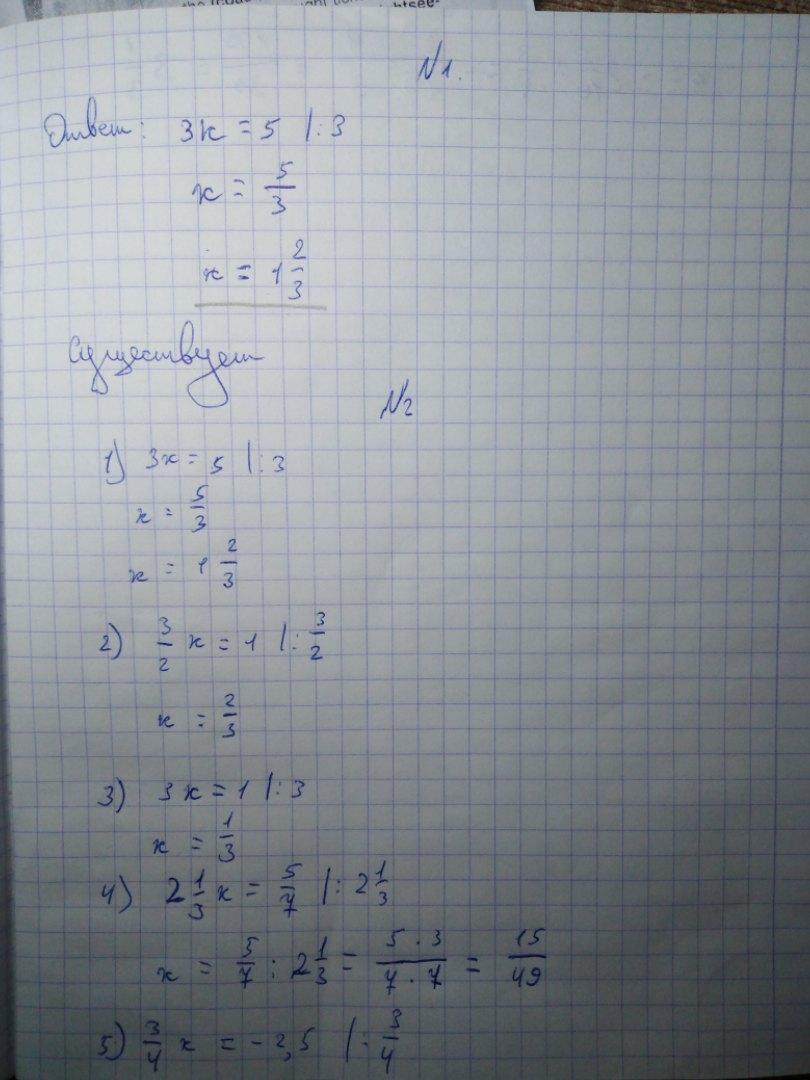 №1.
Ответ: 3x = 5 |:3
x = 5/3
x = 1 2/3
Существует
№2
1) 3x = 5 |:3
x = 5/3
x = 1 2/3
2) 3/2 x = 1 |: 3/2
x = 2/3
3) 3x = 1 |:3
x = 1/3
4) 2 1/3 x = 5/7 |: 2 1/3
x = 5/7 : 2 1/3 = 5·3/7·7 = 15/49
5) 3/4 x = -2,5 |: 3/4